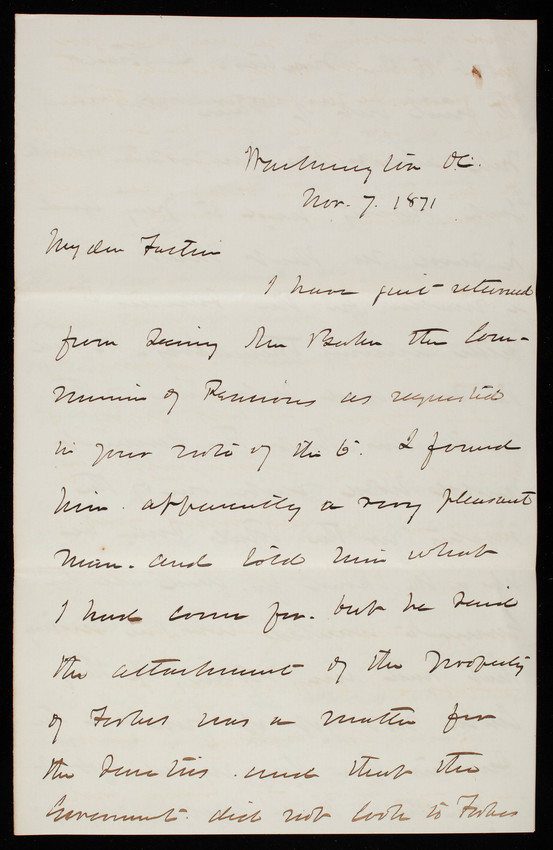 Washington D.C.
Nov. 7. 1871
My dear
I have just returned
from seeing Mr Baker the Com-
missioner of Pensions as requested
in your note of the 6. I found
him. apparently a very pleasant
man. and told him what
I had come for. but he said
the attachment of the property
of Forbes was a matter for
the sureties. and that the
Government. did not look to Forbes